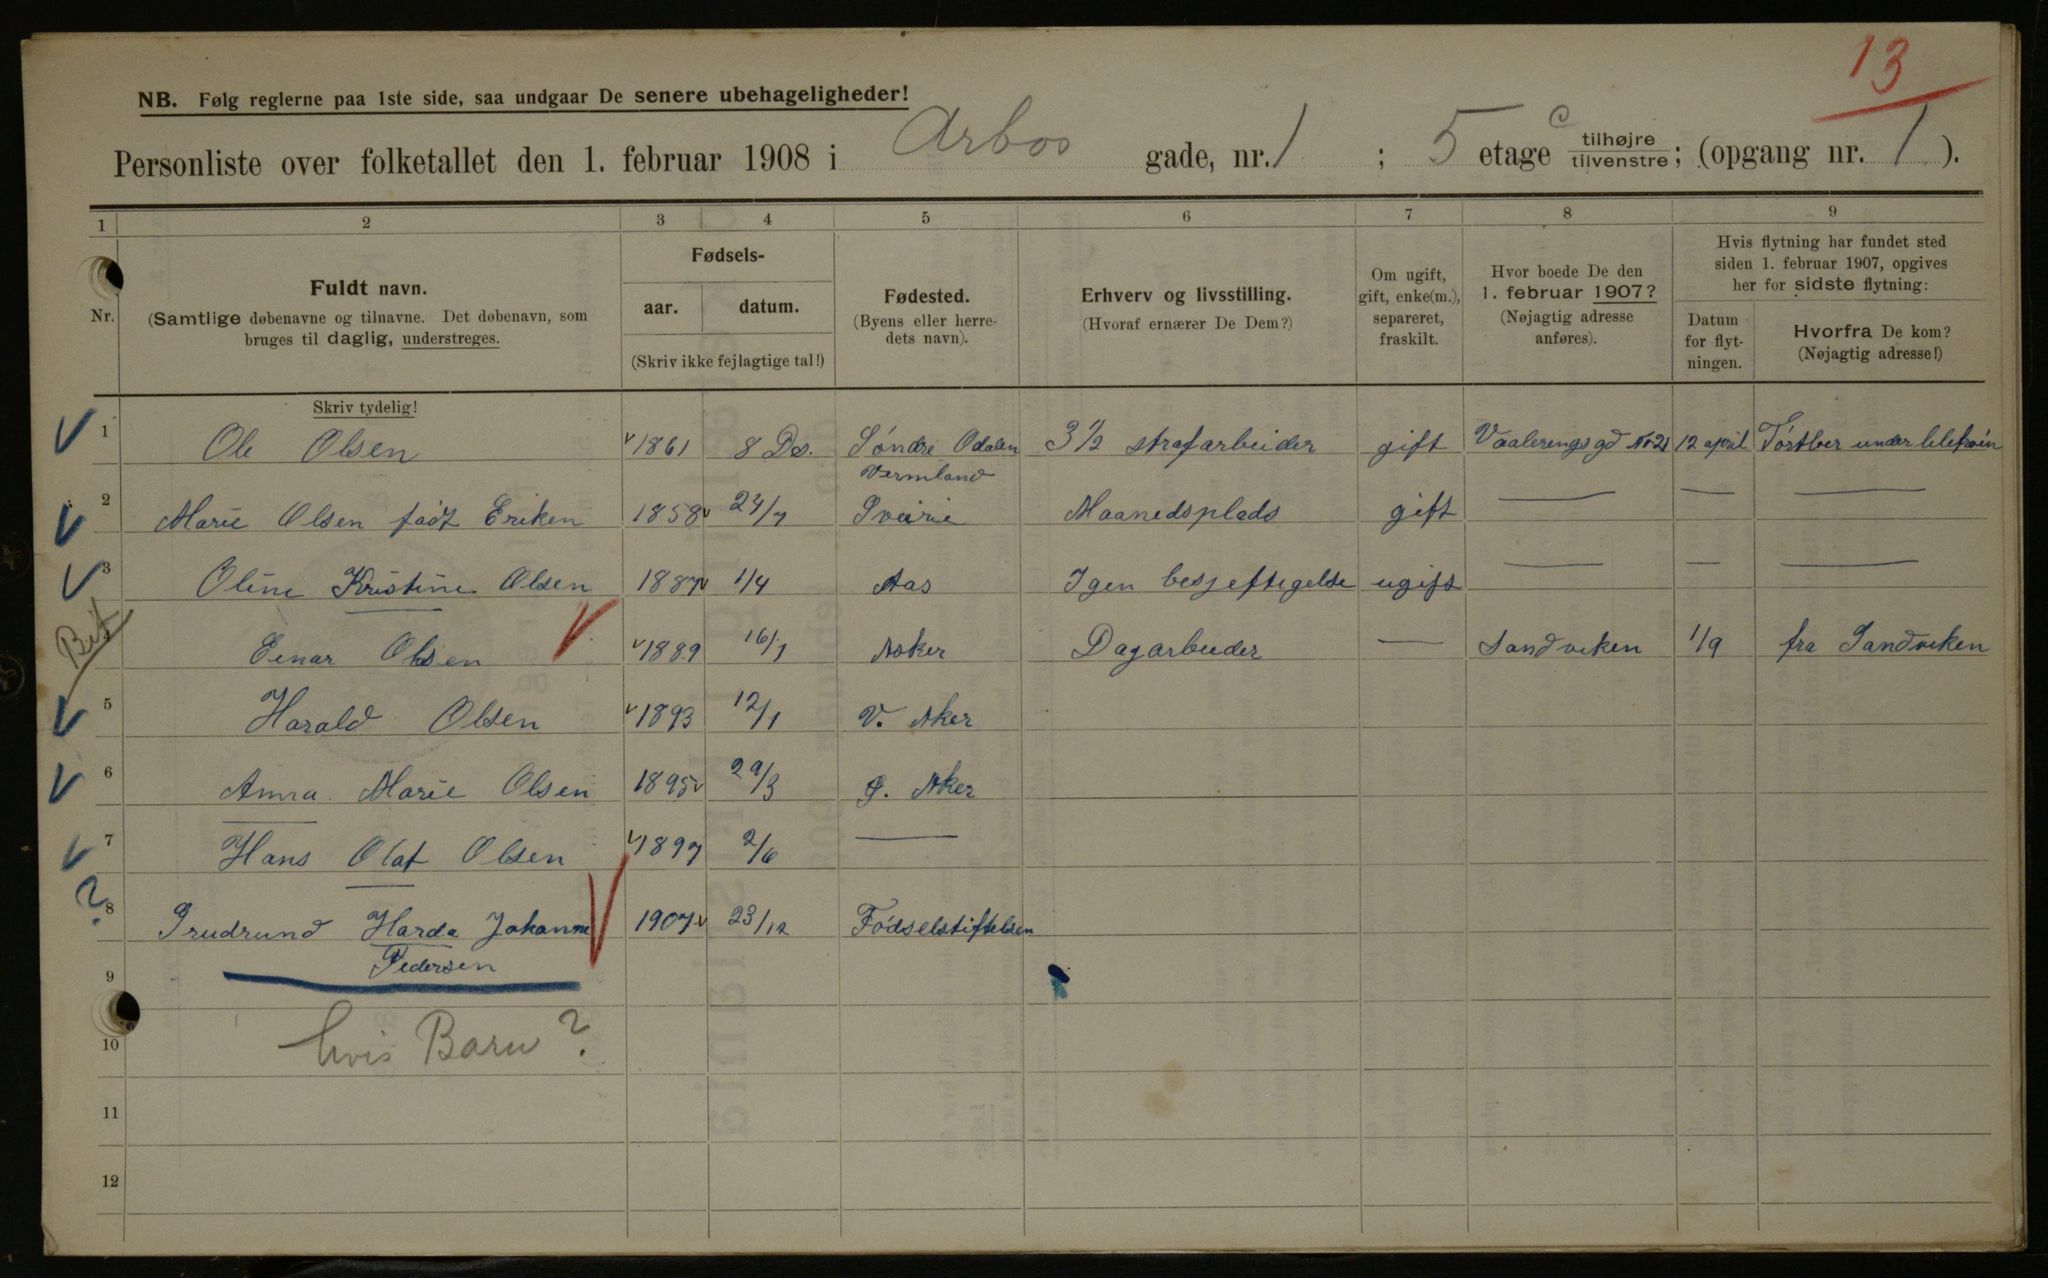 13
NB. Følg reglerne paa 1ste side, saa undgaar De senere ubehageligheder!
Personliste over folketallet den 1. februar 1908 i Arbos gade, nr. 1 ; 5 etage c tilhøjre tilvenstre; (opgang nr. 1 ).
1 2 3 4 5 6 7 8 9
Nr.
Fuldt navn.
(Samtlige døbenavne og tilnavne. Det døbenavn, som
bruges til daglig, understreges.
Fødsels-
aar. datum.
(Skriv ikke fejlagtige tal!)
Fødested.
(Byens eller herre-
dets navn).
Erhverv og livsstilling.
(Hvoraf ernærer De Dem?)
Om ugift,
gift, enke(m.),
separeret,
fraskilt.
Hvor boede De den
1. februar 1907?
(Nøjagtig adresse
anføres).
Hvis flytning har fundet sted
siden 1. februar 1907, opgives
her for sidste flytning:
Datum
for flyt-
ningen.
Hvorfra De kom?
(Nøjagtig adresse!)
Skriv tydelig!
1 Ole Olsen 1861 8 Ds. Söndre Odalen 3 1/2 strafarbeider gift Vaalerengsgd No 21 12 april Törtber under
2 Marie Olsen født Eriken 1858 24/7 Vermland Sveirie Maanedsplads gift — — —
3 Oline Kristine Olsen 1887 1/4 Aas Igen besjeftigelse ugift — — —
Einar Olsen 1889 16/1 Asker Dagarbeider — Sandviken 1/9 fra Sandviken
5 Harald Olsen 1893 12/1 V. Aker
6 Anna Marie Olsen 1895 29/3 Ø. Aker
7 Hans Olaf Olsen 1897 2/6 —
? 8 Grudrund Harda Johanne 1907 23/12 Födselstiftelsen
9 Pedersen
10 hvis Barn?
11
12